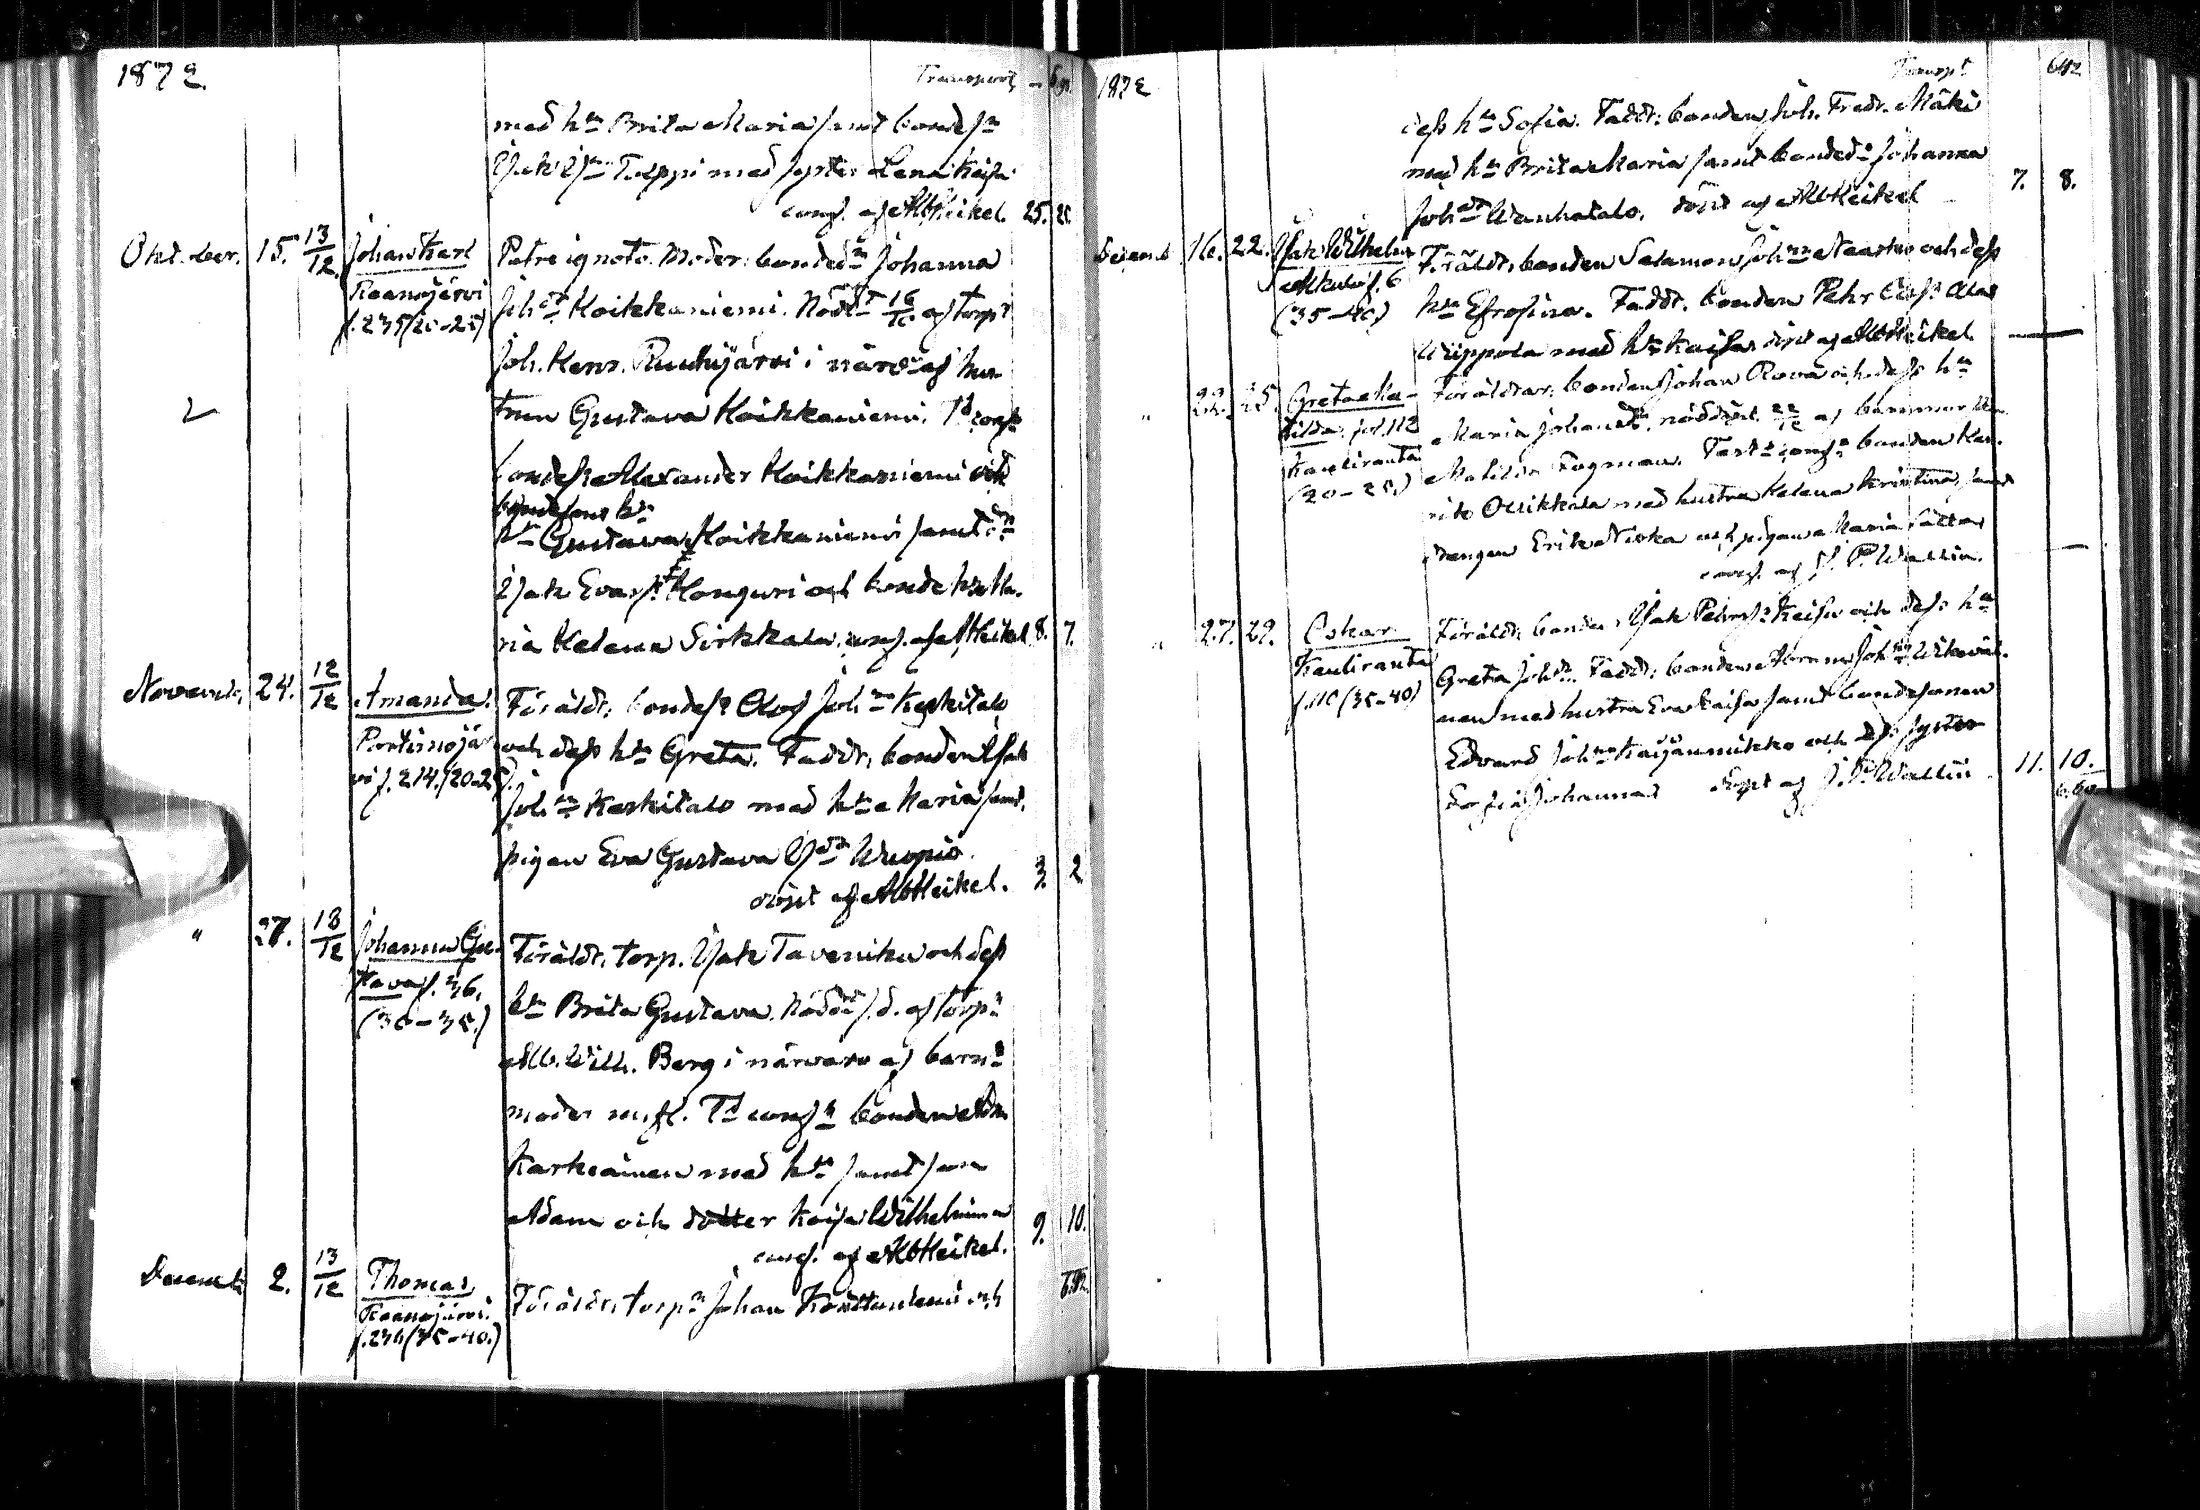 1872.
Transport
med h:n Brita Maria samt bondes:n
Isak Is:n Tuppi med syster Lena Kaisa
conf. af A Heikel. 25.
Oktober. 15. 13/12. Johan Karl
Raanojärvi
f. 235 (20-25)
Patre ignoto. Moder: bonded:n Johanna
Joh:dr Koikkaniemi. Nöddt 16/10 af torp:r
Joh. Henr. Ruuhijärvi i närv: af hu-
trun Gustava Koikkaniemi. T:d conf:n
bondes: Alexander Koikkaniemi och
h:n
Gustava Koikkaniemi samt
Isak Evas: Konguri och bonde h:n Ma-
ria Helena Sirkkala, conf. af A Heikel 8. 7.
Novemb. 24. 12/12 Amanda.
Portimojär-
vi f. 214. (20-25).
Föräldr: bondes: Olof Joh:n Keskitalo
och dess h:n Greta. Faddr: bonden Isak
Joh:n Keskitalo med h:n Maria samt
pigan Eva Gustava Is:dr Wuopio.
döpt af A Heikel. 3. 2
" 27. 18/12 Johanna Gu-
stava f. 36.
(30-35.)
Föräldr. torp. Isak Taveniku och dess
h:n Brita Gustava. Nöddt s. d. af torp:n
Alb. Wilh. Berg i närvaro af barn:
moder m. fl. T:d conf:n bonden Ad.
Karkiainen med h:n samt son
Adam och dotter Kaisa Wilhelmina
conf. af A Heikel. 9. 10.
Decemb. 2. 13/12 Thomas
Raanojärvi.
f. 236 (35-40.)
Föräldr. torp:n Johan Konttaniemi och
1872 Transpt 642
dess h:n Sofia. Faddr: bonden Joh. Fredr. Mäki
med h:n Brita Maria samt bonded:n Johanna
Joh:dr Wanhatalo. döpt af A Heikel 7. 8.
Decemb 16. 22. Isak Wilhelm
Alkula f. 6
(35-40)
Föräldr. bonden Salamon Joh:n Naarko och dess
h:n Efrosina. Faddr. bonden Pehr Olofs:n
Wuppola med h:n Kaisa döpt af A Heikel
" 22. 25. Greta Ma-
tilda. fol. 112
Kauliranta
(20-25.)
Föräldrar: bonden Johan Rova och dess h:n
Maria Johansd:r, nöddöpt 22/12 af barnmor
Matilda Fogman. Fadr: conf:n bonden Hen-
rik Ollikkala med hustru Helena Kristina, samt
drengen Erik Niska och pigan Maria Sätta
conf. af J. P. Wallin.
" 27. 29. Oskar
Kauliranta
f. 110 (35-40)
Föräldr: bonden Isak Pehrs:n Keisu och dess h:n
Greta Joh:dr. Faddr: bonden Abram Joh:n
med hustru Eva Kaisa samt bondesonen
Edvard Joh:n Kaijanmikko och dess syster
Sofia Johanna döpt af J. P. Wallin 11. 10.